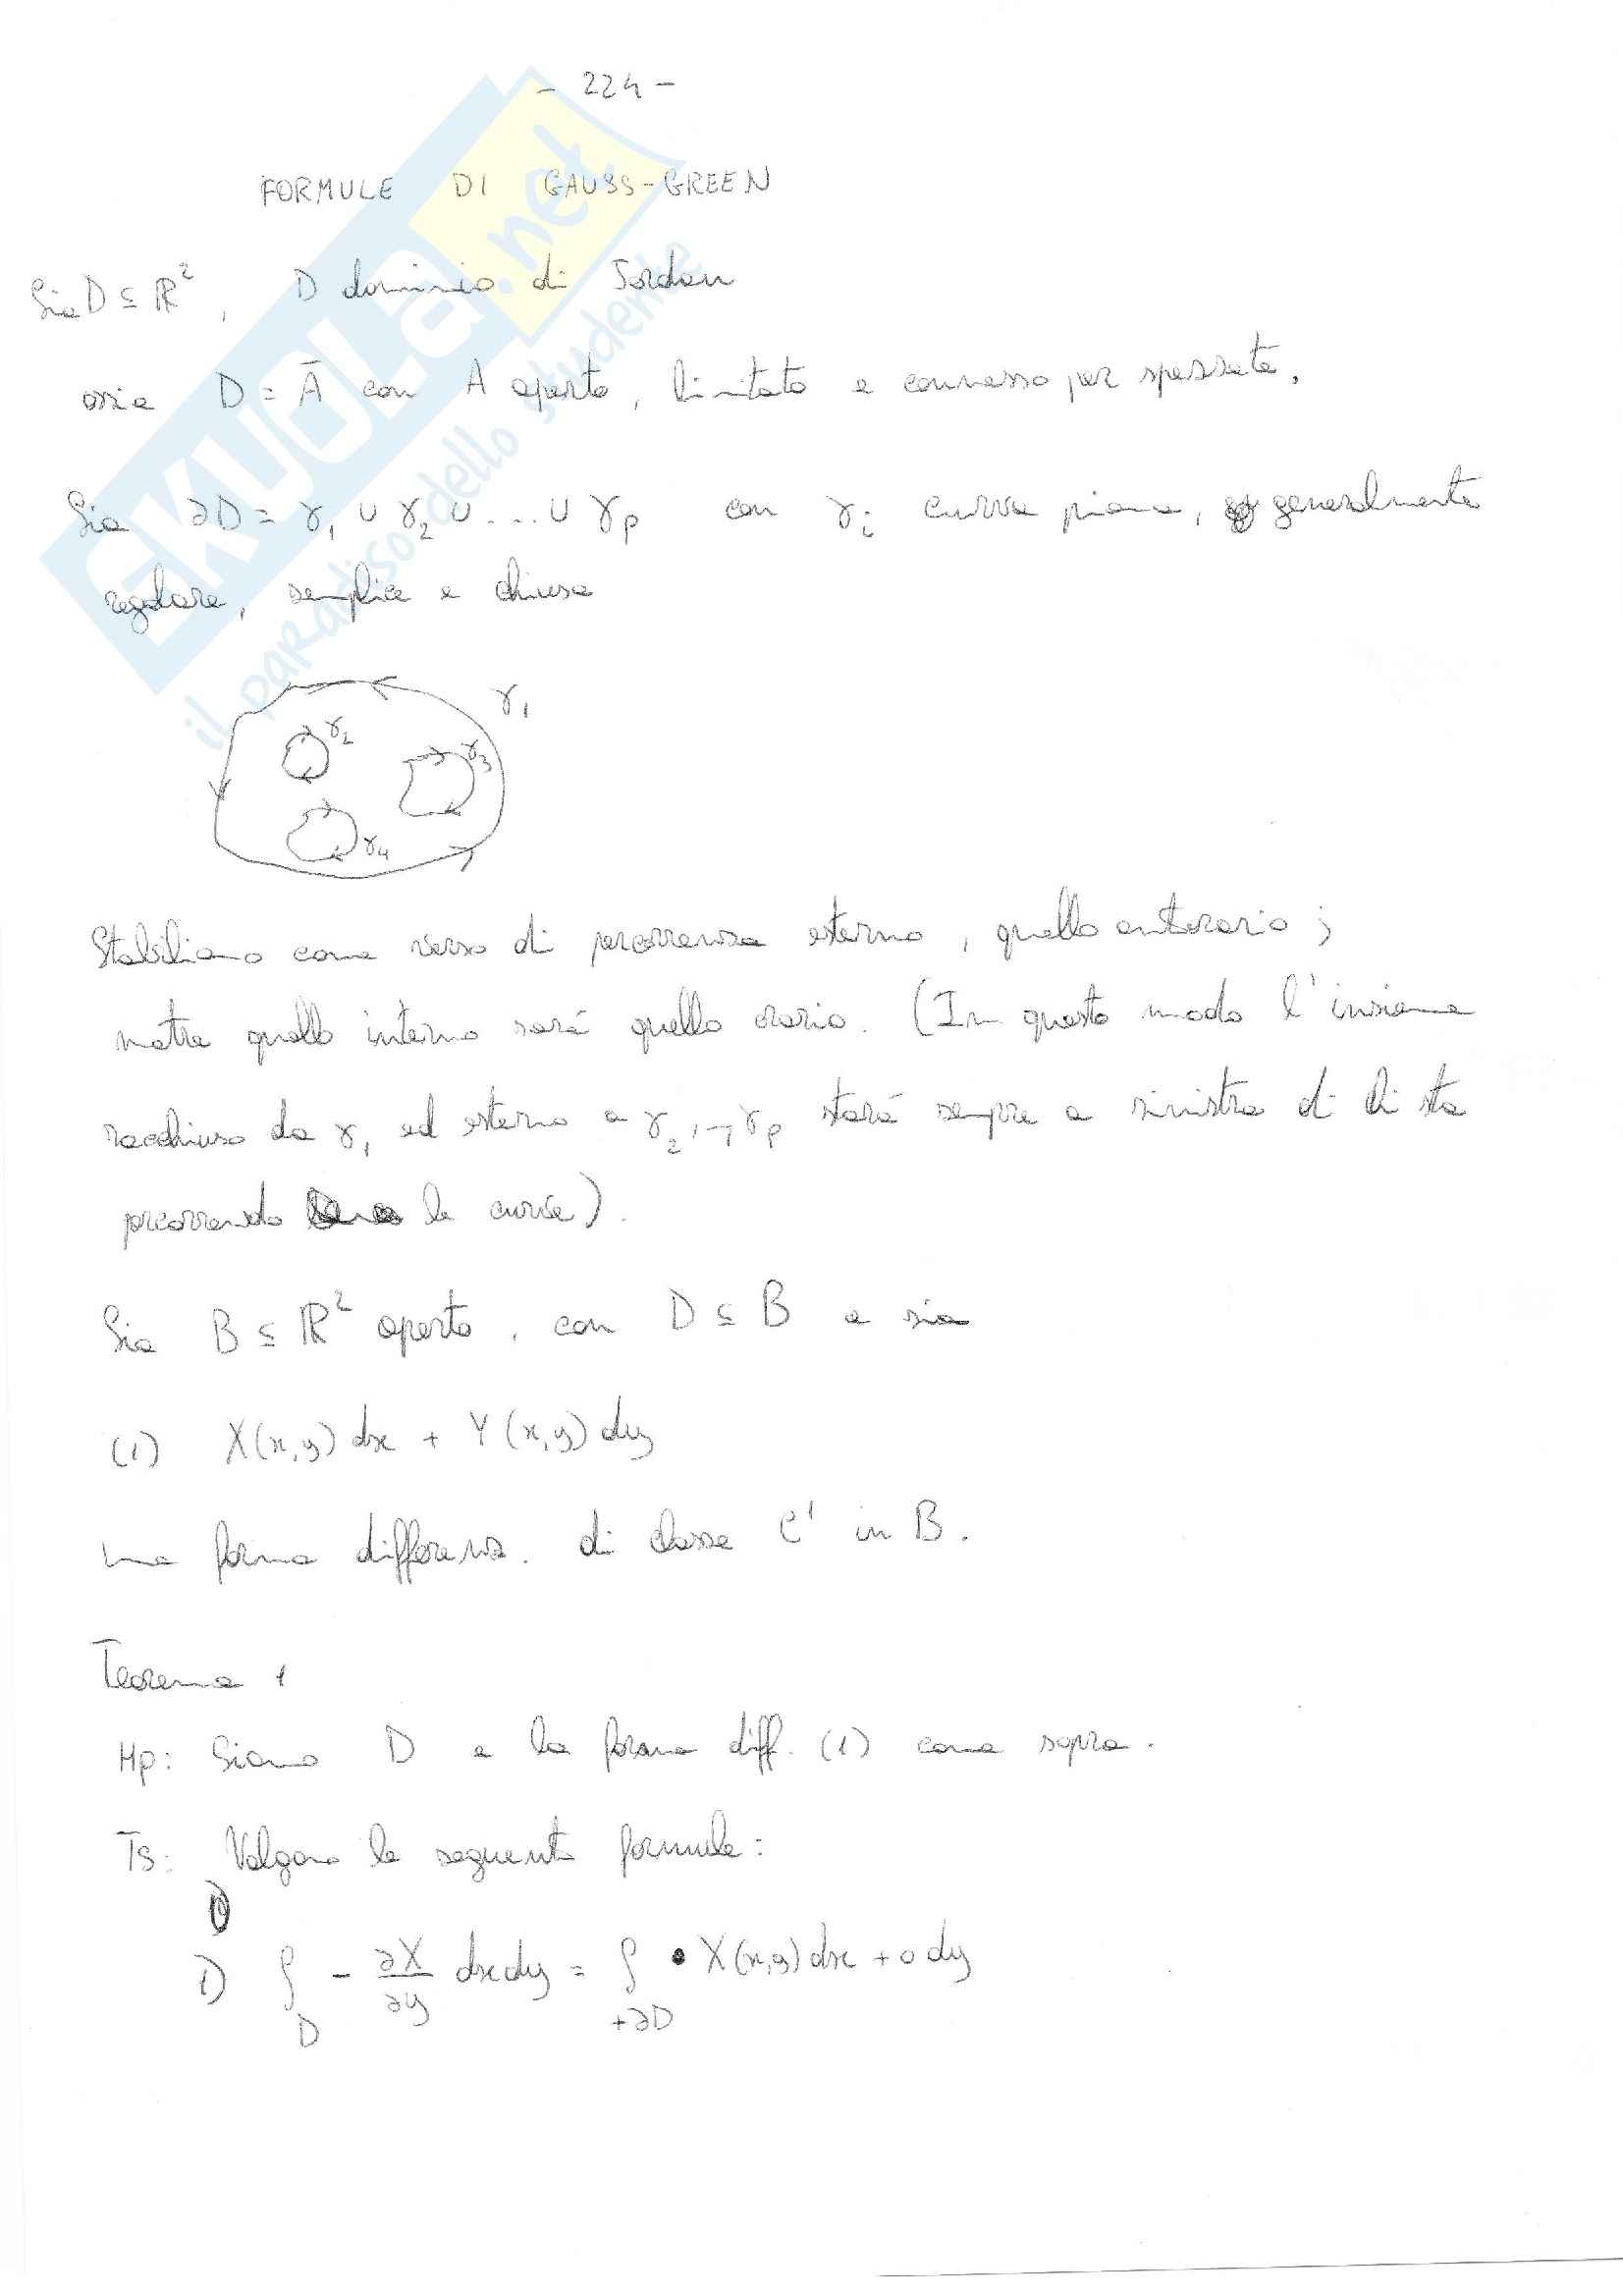 - 224 -
FORMULE DI GAUSS-GREEN
Sia D ⊆ ℝ², D dominio di Jordan
ossia D = Ā con A aperto, limitato e connesso per spezzate.
Sia ∂D = γ₁ ∪ γ₂ ∪ ... ∪ γp con γi curva piana, generalmente
regolare, semplice e chiusa
γ₁
γ₂
γ₃
γ₄
Stabiliamo come verso di percorrenza esterno, quello antiorario;
mentre quello interno sarà quello orario. (In questo modo l'insieme
racchiuso da γ₁ ed esterno a γ₂,..,γp starà sempre a sinistra di chi sta
percorrendo le curve).
Sia B ⊆ ℝ² aperto, con D ⊆ B e sia
(1) X(x,y) dx + Y(x,y) dy
una forma differenz. di classe C¹ in B.
Teorema 1
Hp: Siano D e la forma diff. (1) come sopra.
Ts: Valgono le seguenti formule:
1) ∫_D - ∂X/∂y dxdy = ∫_+∂D X(x,y) dx + 0 dy
SKUOLA.net
il paradiso dello studente